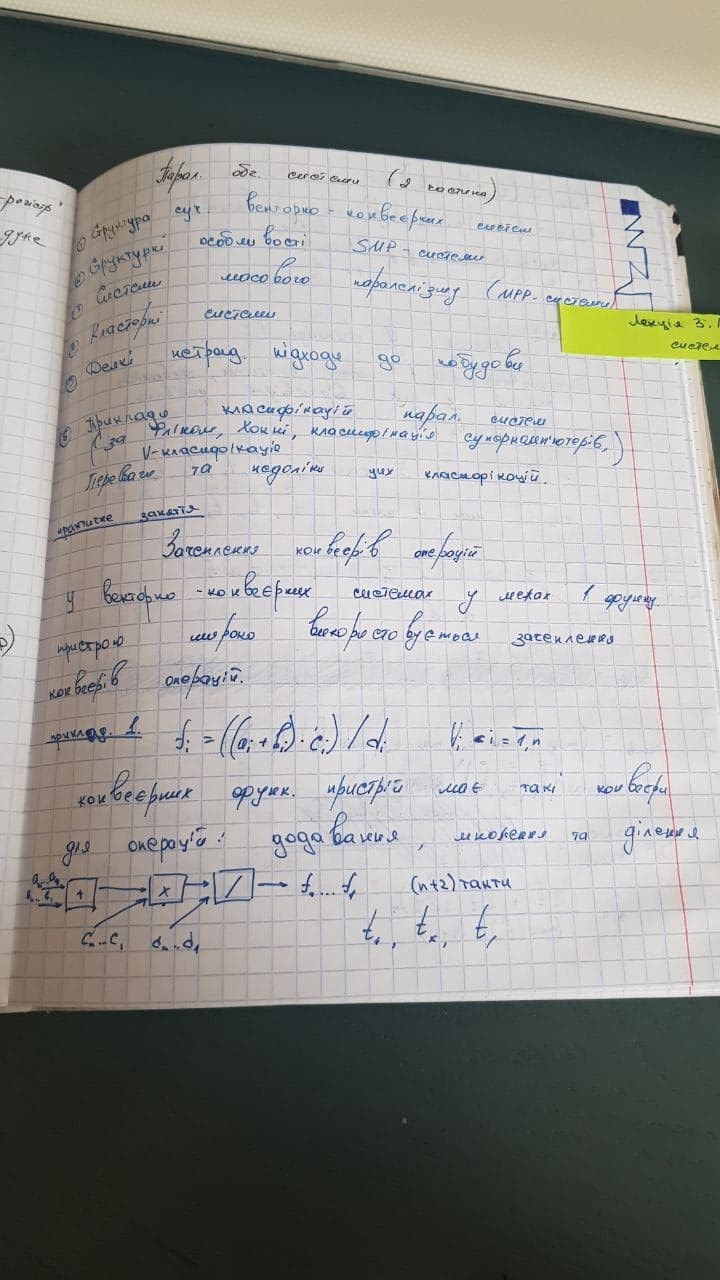 рогістр
дуне
Парал. обч. системи (2 частина)
① Структура суч. векторно-конвеєрних систем
② Структурні особливості SMP-системи
③ Системи масового паралелізму (MPP-системи)
④ Кластерні системи
⑤ Деякі нетрад. підходи до побудови
⑥ Приклади класифікацій парал. систем
(за Фліном, Хокні, класифікація суперкомп'ютерів,)
V-класифікація
Переваги та недоліки цих класифікацій.
Лекція 3.
систем
практичне заняття
Зачеплення конвеєрів операцій
У векторно-конвеєрних системах у межах 1 функц.
пристрою широко використовується зачеплення
конвеєрів операцій.
приклад. 1. fᵢ = ((aᵢ + bᵢ) · cᵢ) / dᵢ ∀i i = 1,n
конвеєрних функ. пристрій має такі конвеєри
для операцій: додавання, множення та ділення
aₙ...a₁
bₙ...b₁ + × / fₙ....f₁ (n+2) такти
cₙ...c₁ dₙ...d₁ t₊, tₓ, t/